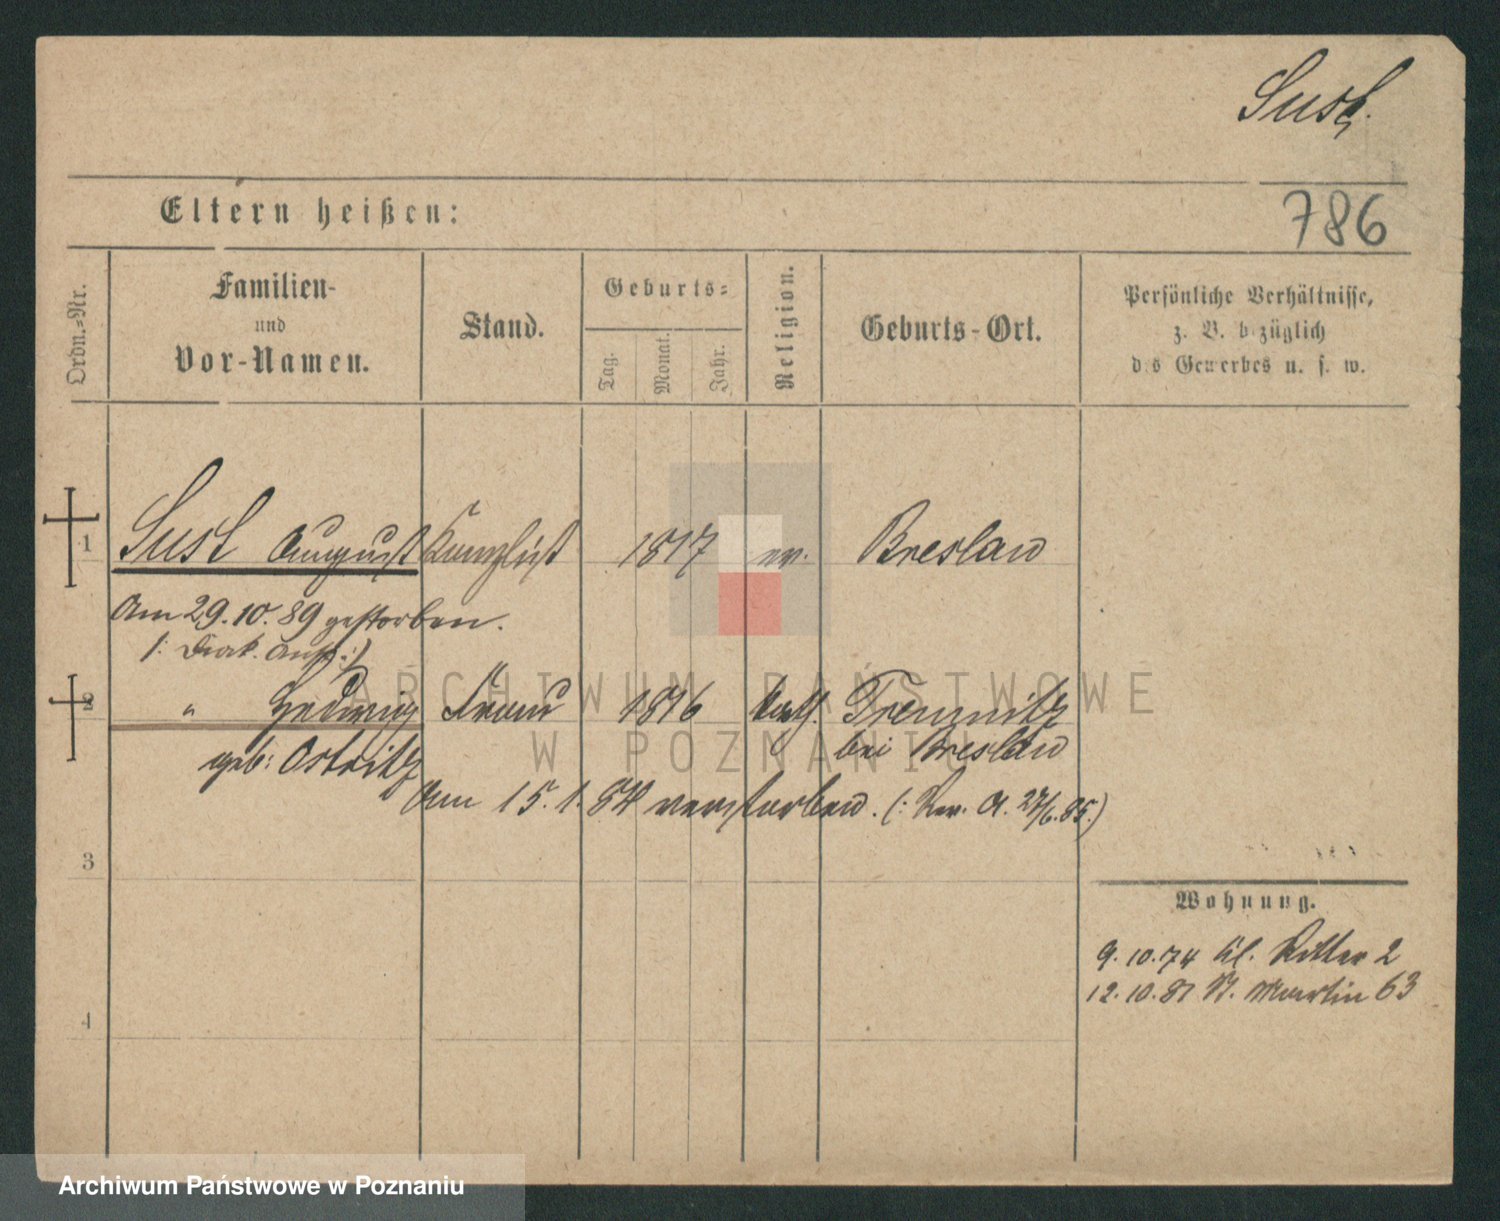 Sust.
Eltern heißen:
786
Ordn.-Nr.
Familien-
und
Vor-Namen.
Stand.
Geburts-
Tag.
Monat.
Jahr.
Religion.
Geburts-Ort.
Persönliche Verhältnisse,
z. B. bezüglich
des Gewerbes u. s. w.
1 Sust August Kanzlist 1817 ev. Breslau
Am 29.10.89 gestorben.
2 " Hedwig Frau 1816 kath. Trebnitz
bei Breslau
geb: Ostritz
Am 15.1.84 verstorben. (: Rev. A. 27/6.85.)
3
Wohnung.
9.10.74 Kl. Ritter 2
12.10.81 St. Martin 63
4
ARCHIWUM PAŃSTWOWE
W POZNANIU
Archiwum Państwowe w Poznaniu